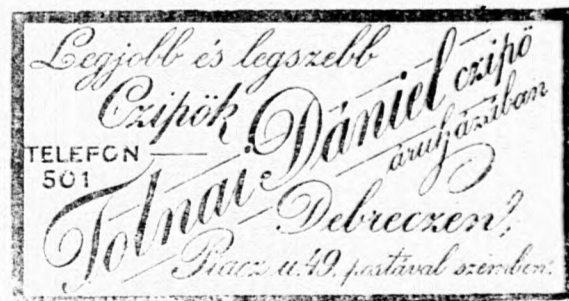 Legjobb és legszebb
Czipök
TELEFON
501
Tolnai Dániel czipö
áruházában
Debreczen,
Piacz u. 49. postával szemben.